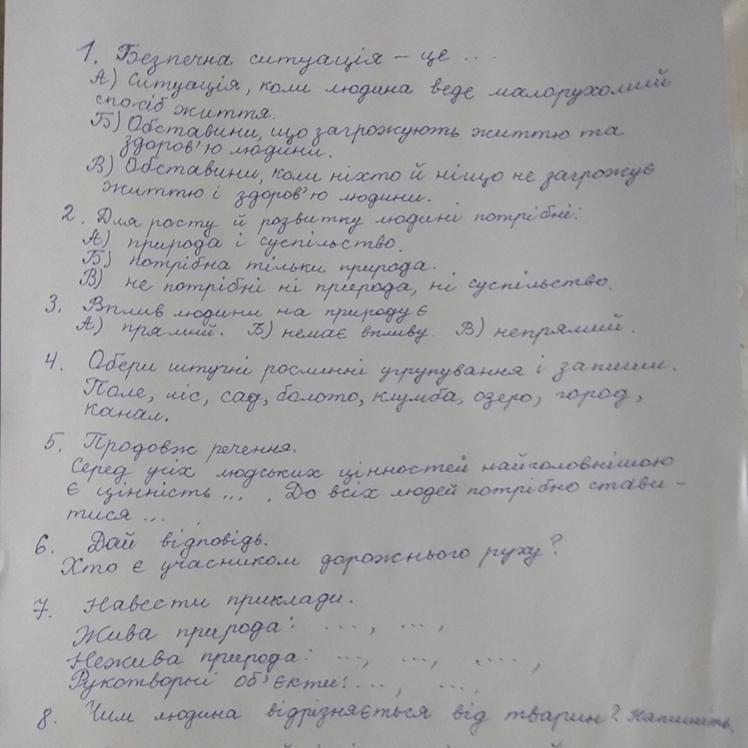 1. Безпечна ситуація – це ...
А) Ситуація, коли людина веде малорухомий
спосіб життя.
Б) Обставини, що загрожують життю та
здоров'ю людини.
В) Обставини, коли ніхто й ніщо не загрожує
життю і здоров'ю людини.
2. Для росту й розвитку людині потрібні:
А) природа і суспільство.
Б) потрібна тільки природа.
В) не потрібні ні природа, ні суспільство.
3. Вплив людини на природу є
А) прямий. Б) немає впливу. В) непрямий.
4. Обери штучні рослинні угрупування і запиши.
Поле, ліс, сад, болото, клумба, озеро, город,
канал.
5. Продовж речення.
Серед усіх людських цінностей найголовнішою
є цінність ... . До всіх людей потрібно стави-
тися ... .
6. Дай відповідь.
Хто є учасником дорожнього руху?
7. Навести приклади.
Жива природа: ..., ...,
Нежива природа: ..., ..., ....,
Рукотворні об'єкти: ..., ...,
8. Чим людина відрізняється від тварин? Напишіть.